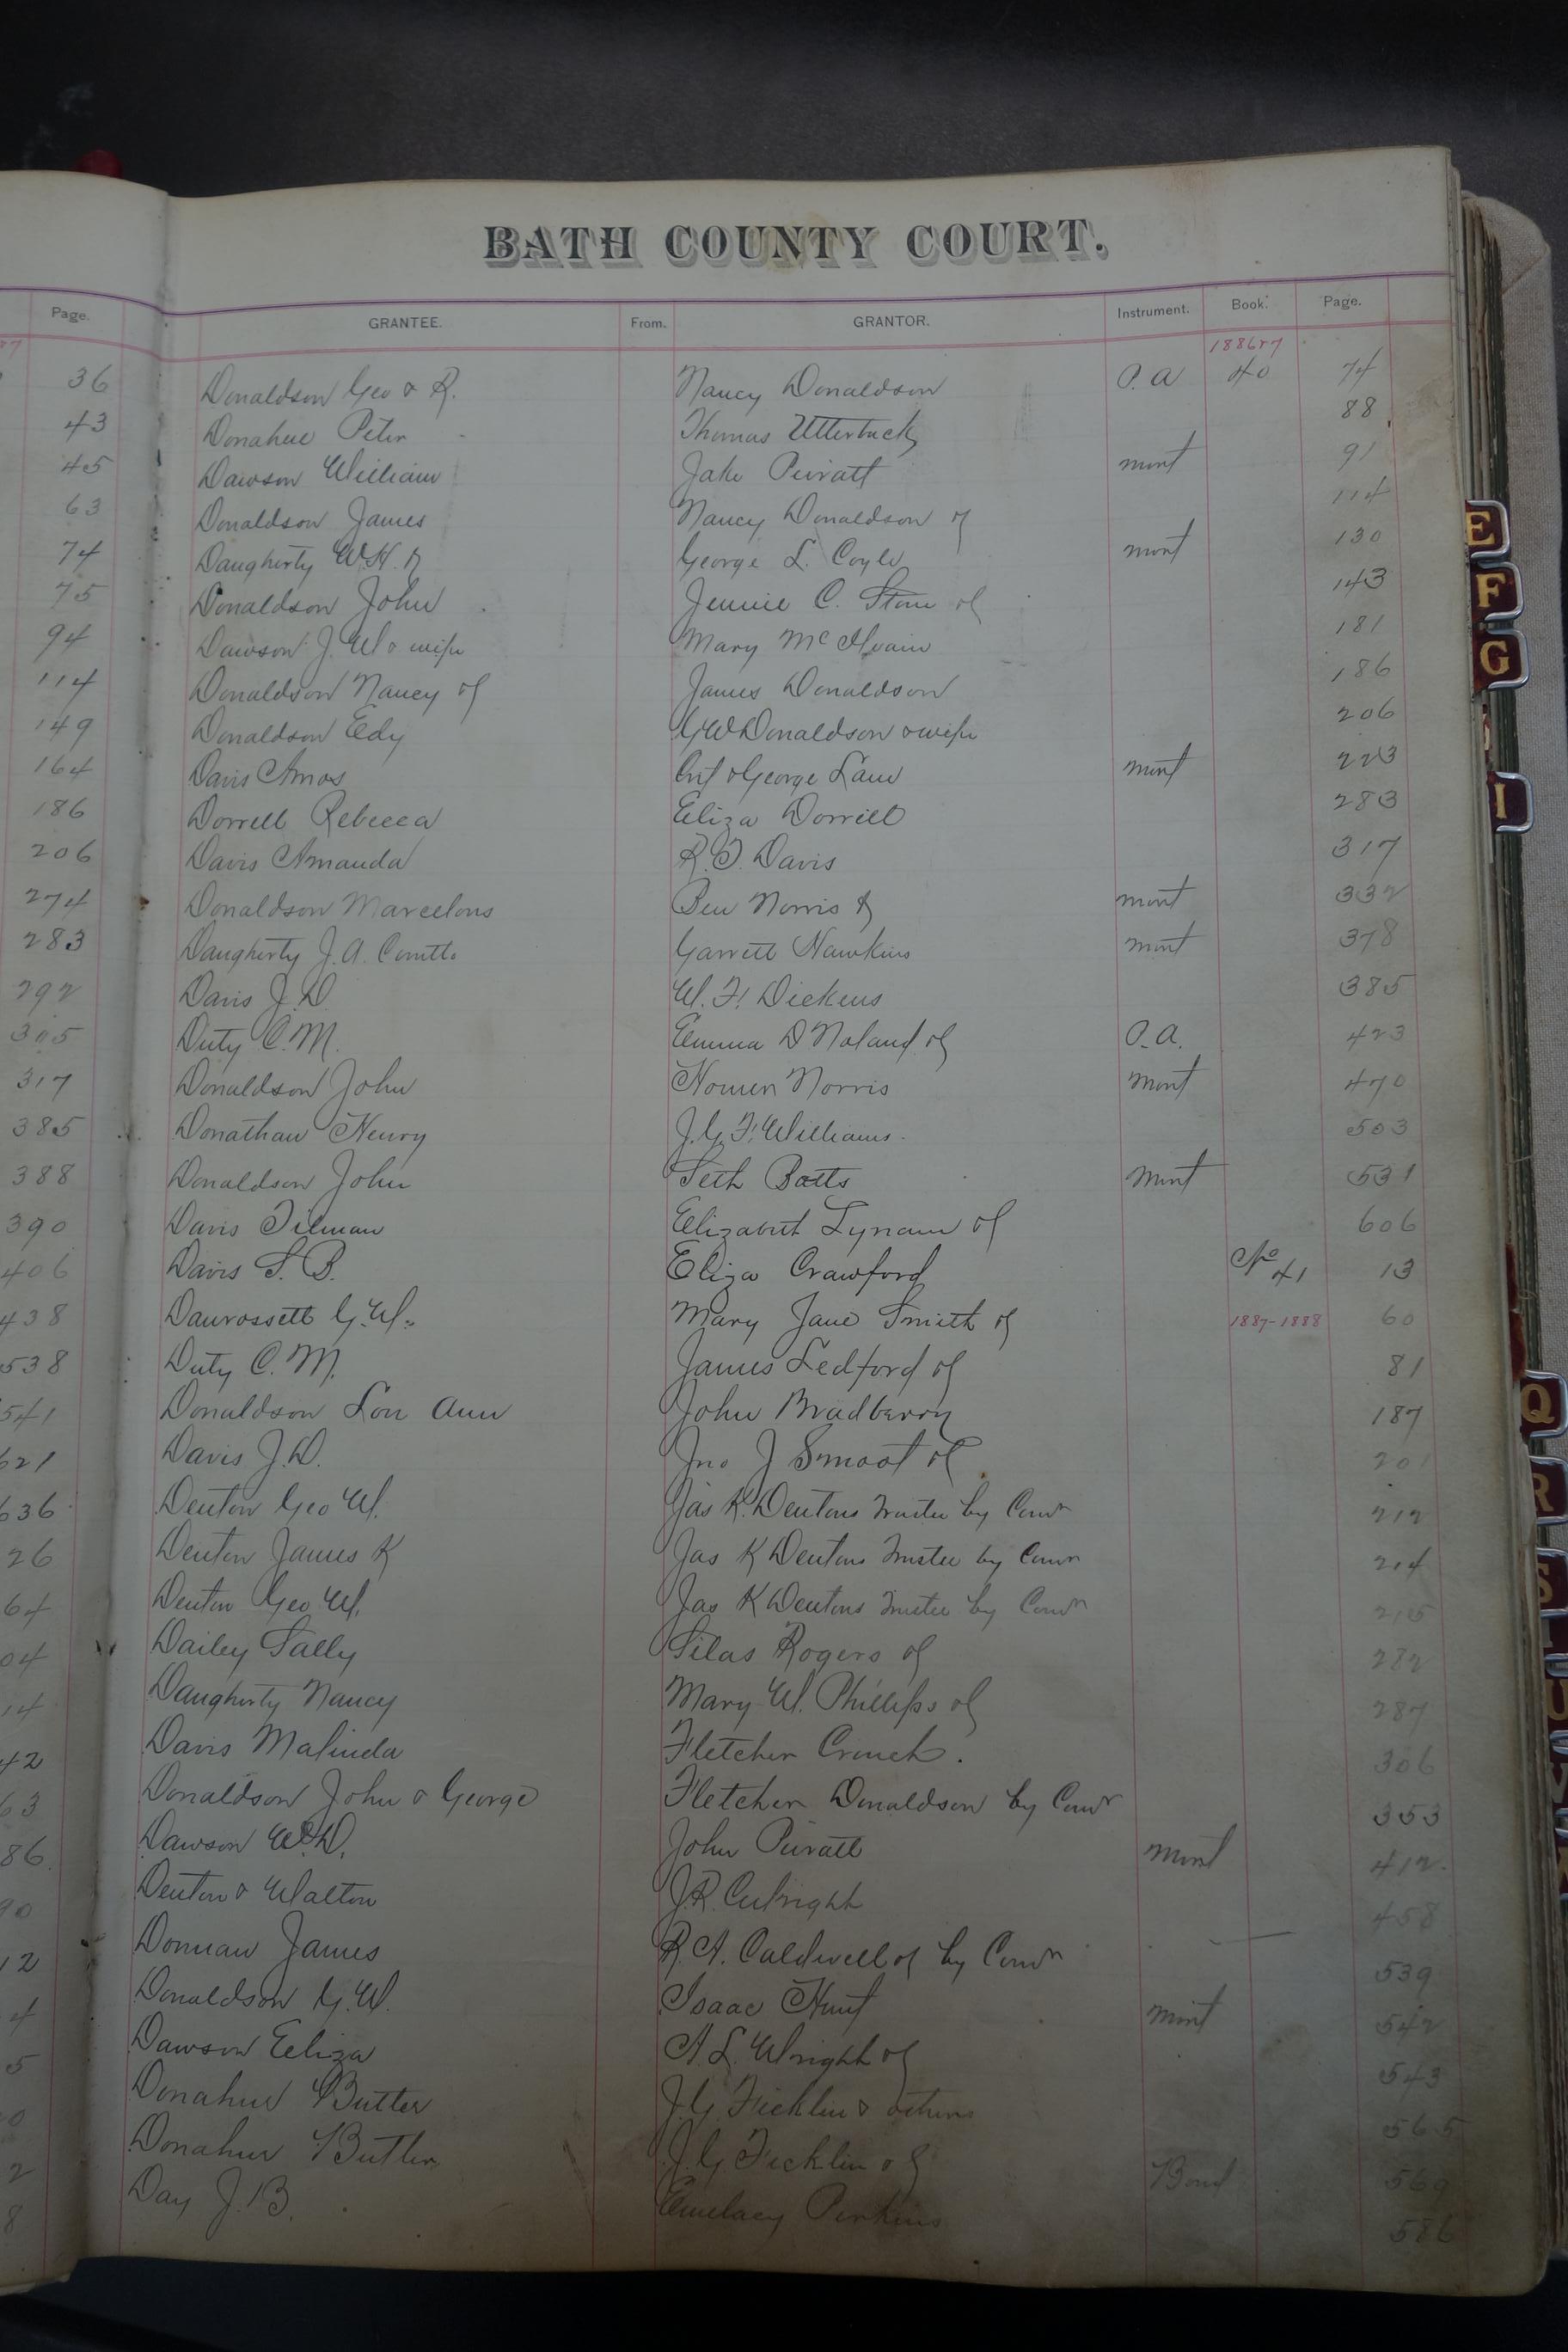 BATH COUNTY COURT.
Page. GRANTEE. From. GRANTOR. Instrument. Book. Page.
87 1886&7
36 Donaldson Geo & R. Nancy Donaldson P.A 40 74
43 Donahue Peter Thomas Utterback 88
45 Dawson William Jake Peiratt mort 91
63 Donaldson James Nancy Donaldson of 114
74 Daugherty W.H. & George L. Coyle mort 130
75 Donaldson John Jennie C. Stone of 143
94 Dawson J. W & wife Mary McIlvain 181
114 Donaldson Nancy of James Donaldson 186
149 Donaldson Edy G W Donaldson & wife 206
164 Davis Amos & George Lane mort 223
186 Dorrell Rebecca Eliza Dorrell 283
206 Davis Amanda R. T. Davis 317
274 Donaldson Marcelous Ben Norris & mort 332
283 Daugherty J. A. Comtte Garrett Hawkins mort 378
292 Davis J. D. W. F. Dickens 385
305 Duty C. M. Emma D Noland of P.A. 423
317 Donaldson John Norris mort 470
385 Donathan Henry J. G. F. Williams. 503
388 Donaldson John Seth Botts Mort 531
390 Davis Tilman Elizabeth Lynam of 606
406 Davis S. B. Eliza Crawford No 41 13
438 G. W. Mary Jane Smith of 1887-1888 60
538 Duty C. M. James Ledford of 81
541 Donaldson Lou Ann John Bradberry 187
621 Davis J. D. Jno J Smoot of 201
636 Denton Geo W. Jas K. Dentons Trustee by Comr 212
26 Denton James K Jas K Dentons Trustee by Comr 214
64 Denton Geo W. Jas K Dentons Trustee by Comr 215
04 Dailey Sally Silas Rogers of 282
14 Daugherty Nancy Mary W. Phillips of 287
42 Davis Malinda Fletcher Crouch. 306
63 Donaldson John & George Fletcher Donaldson by Comr 353
86 Dawson W. D. John Peiratt Mort 412
90 Denton & Walton J. R. Culright 458
12 Donnan James R. A. Caldwell of by Comr 539
4 Donaldson G. W. Isaac Hunt mort 542
5 Dawson Eliza A. L. Wright of 543
0 Donahue Butler J. G. Ficklin & others 565
2 Donahue Butler J. G. Ficklin of Bond 569
8 Day J. B. Perkins 586
E
F
G
I
Q
R
S
U